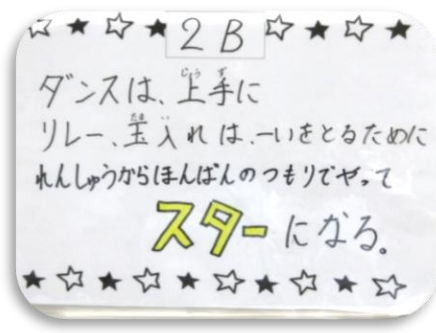 2B
ダンスは、上手に
リレー、玉入れは、一いをとるために
れんしゅうからほんばんのつもりでやって
スターになる。